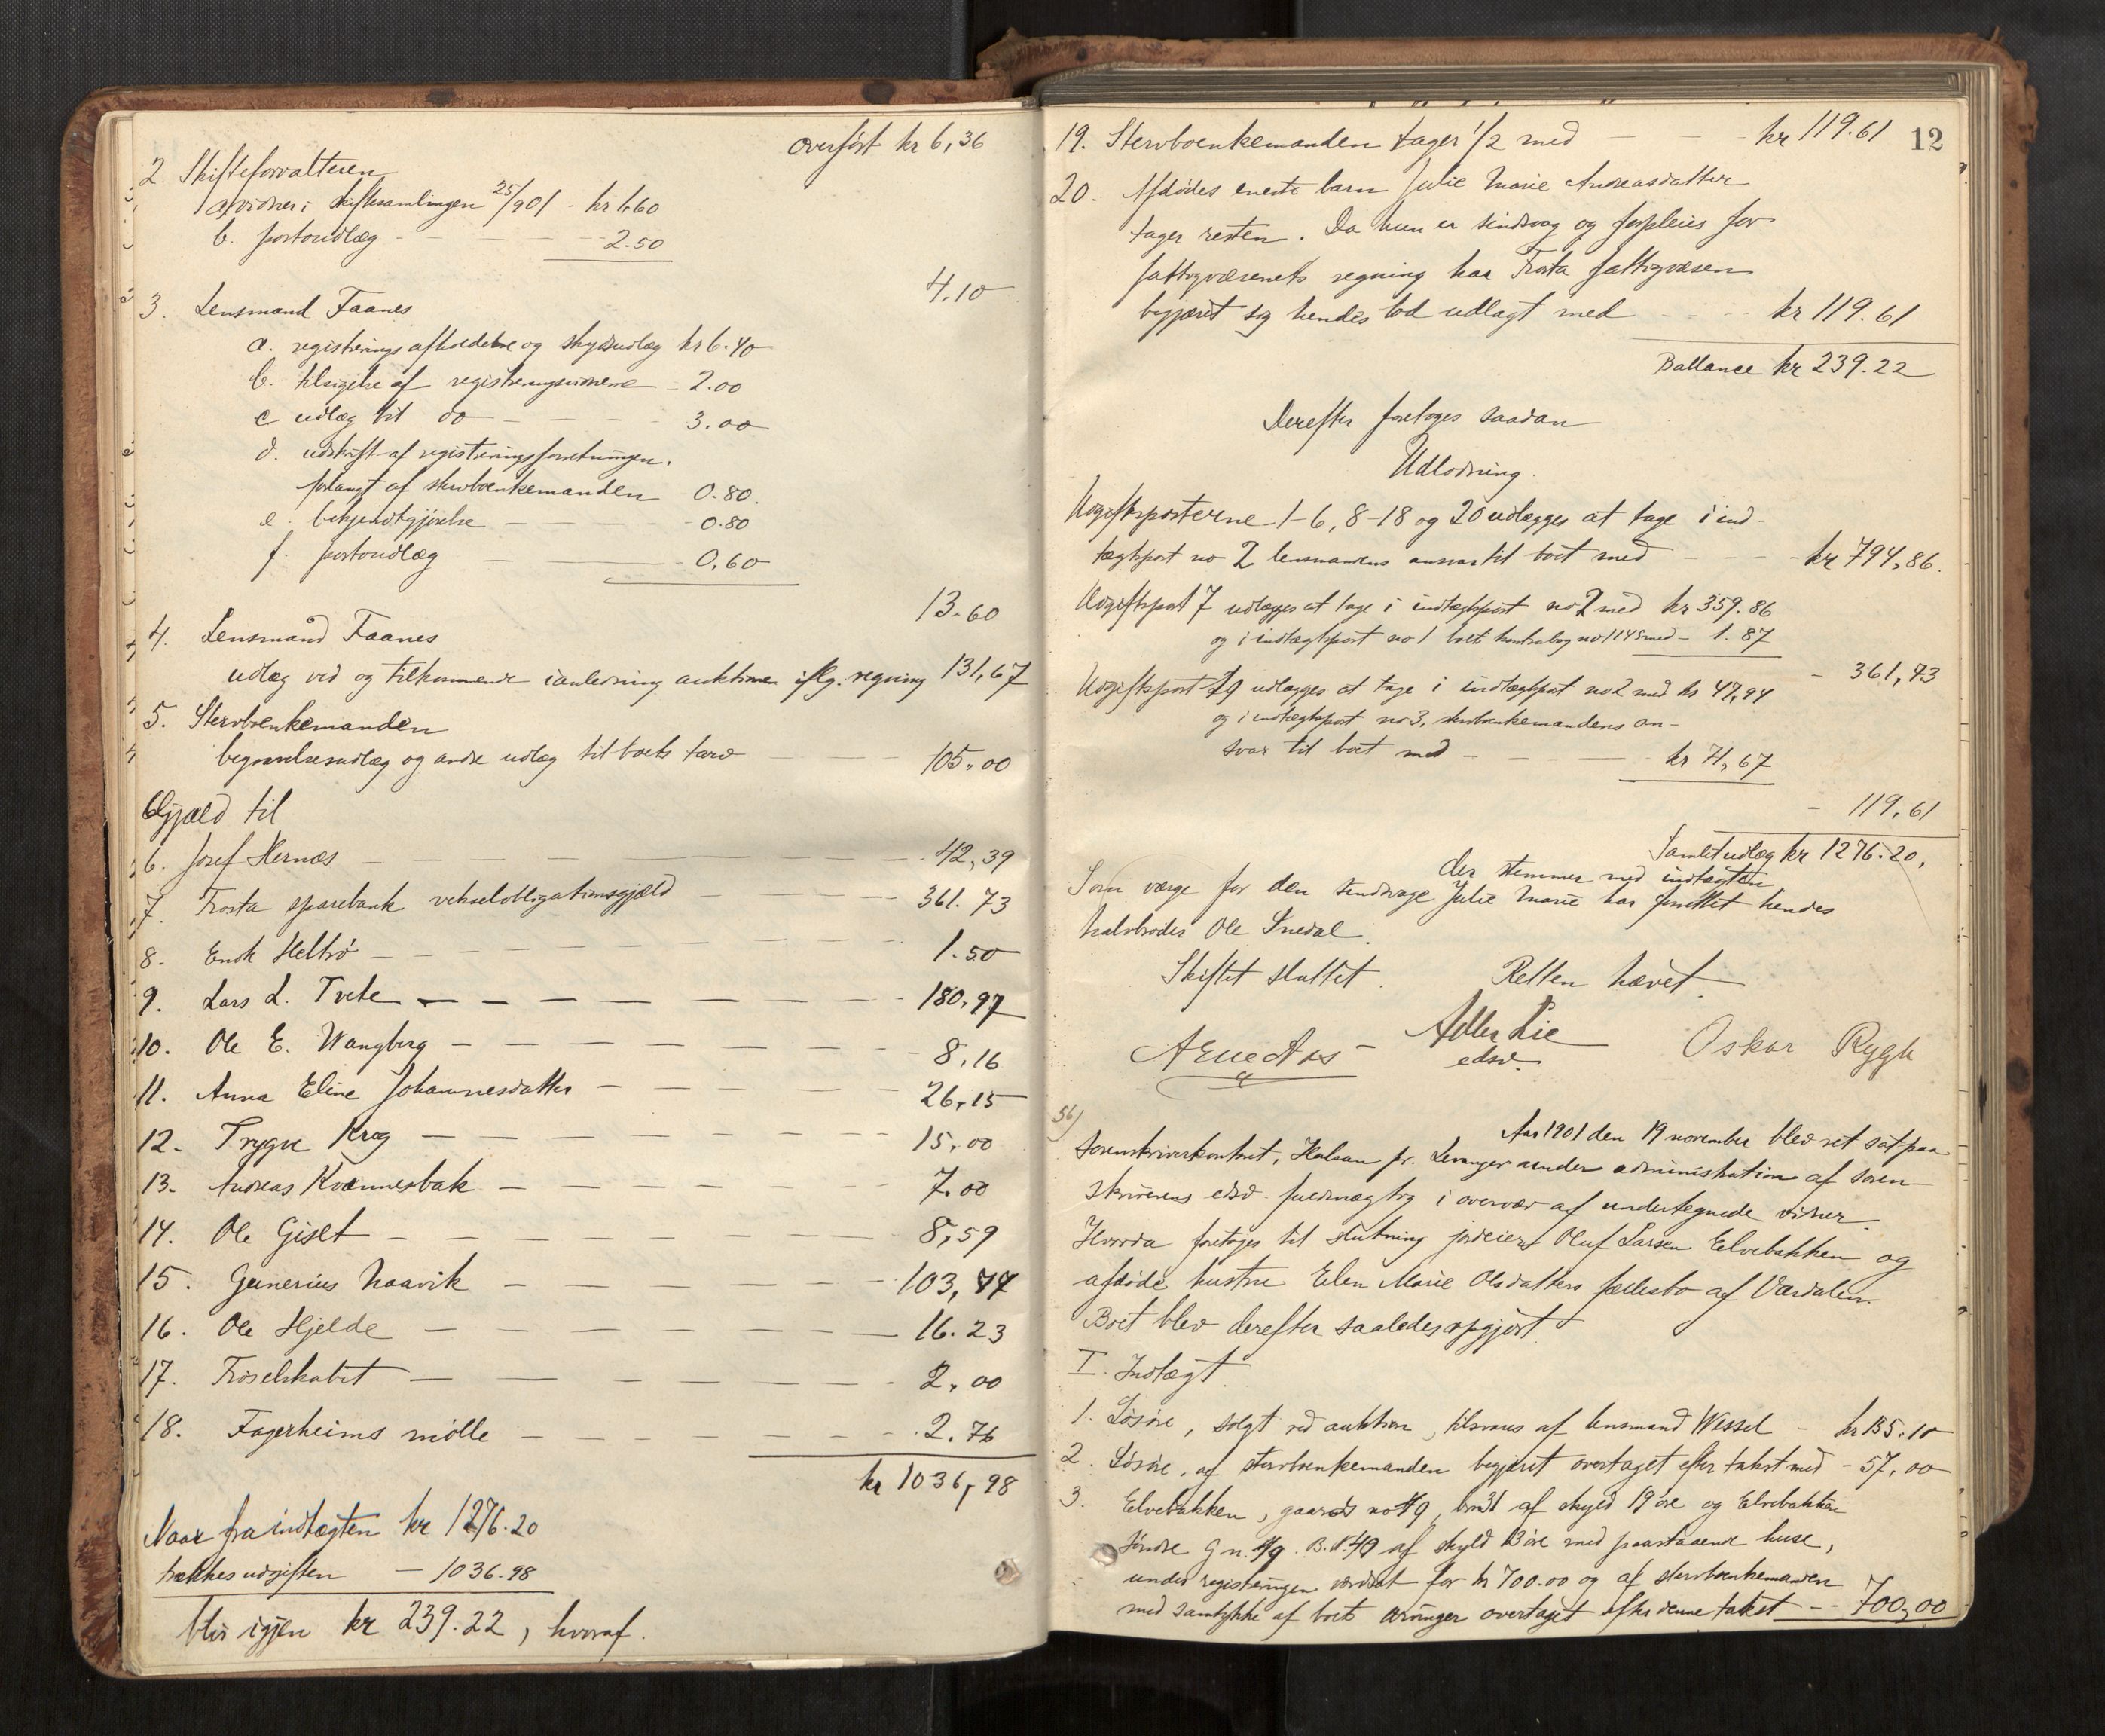 overført kr 6,36
2. Skifteforvalteren
a. vidner i skiftesamlingen 25/901 - kr 1,60
b. portoudlæg - 2.50
4,10
3. Lensmand Faanes
a. registrerings afholdelse og skydsudlæg kr 6.40
b. tilsigelse af registreringsvidnerne - 2.00
c udlæg til do - 3.00
d. udskrift af registreringsforretningen,
forlangt af sterboenkemanden 0.80.
e. bekjendtgjørelse - 0.80
f. portoudlæg - 0,60
13.60
4. Lensmand Faanes
udlæg ved og tilkommende i anledning auktionen iflg. regning 131,67
5. Sterboenkemanden
begravelsesudlæg og andre udlæg til boets tarv 105,00
Gjæld til
6. Josef Hernæs - 42,39
7. Frosta sparebank vekselobligationsgjæld - 361.73
8. Enok Heltrø - 1.50
9. Lars L. Trete - 180,97
10. Ole E. Wangberg - 8,16
11. Anna Eline Johannesdatter - 26,15
12. Trygve Krog - 15,00
13. Andreas Kvænnesbak - 7.00
14. Ole Giset - 8,59
15. Gunerius Naavik - 103,77
16. Ole Hjelde - 16.23
17. Froselskabet - 2,00
18. Fagerheims mølle - 2.76
kr 1036,98
Naar fra indtægten kr 1276.20
trækkes udgiften - 1036.98
blir igjen kr 239.22, hvoraf.
12
19. Sterboenkemanden tager 1/2 med - kr 119.61
20. Afdødes eneste barn Julie Marie Andreasdatter
tager resten. Da hun er sindsvag og forpleies for
fattigvæsenets regning har Frosta fattigvæsen
begjæret sig hendes lod udlagt med - kr 119.61
Ballance kr 239.22
Derefter foretoges saadan
Udlodning.
Udgiftsposterne 1-6, 8-18 og 20 udlægges at tage i ind-
tægtspost no 2 lensmandens ansvar til boet med - kr 794,86.
Udgiftspost 7 udlægges at tage i indtægtspost no 2 med kr 359.86
og i indtægtspost no 1 boets kontrabog no 1145 med - 1.87
- 361,73
Udgiftspost 19 udlægges at tage i indtægtspost no 2 med kr 47,94
og i indtægtspost no 3, sterboenkemandens an-
svar til boet med - kr 71,67
- 119,61
Samlet udlæg kr 1276.20,
der stemmer med indtægten
Som værge for den sindsvage Julie Marie har fremstillet hendes
halvbroder Ole Snedal.
Skiftet sluttet. Retten hævet.
Arne Aas Adler Lie Oskar Rygh
edsv.
56)
Aar 1901 den 19 november blev ret sat paa
sorenskriverkontoret, Halsan pr. Levanger under administration af soren-
skriverens edsv. fuldmægtig i overvær af undertegnede vidner.
Hvorda foretoges til slutning jordeier Oluf Larsen Elvebakken og
afdøde hustru Elen Marie Olsdatters fællesbo af Værdalen.
Boet blev derefter saaledes opgjort.
I. Indtægt
1. Løsøre, solgt ved auktion, tilsvares af lensmand Wessel - kr 135.10
2. Løsøre, af sterboenkemanden begjæret overtaget efter takst med - 57,00
3. Elvebakken, gaards no 49, br. 31 af skyld 19 øre og Elvebakken
søndre G n. 49. B. N. 40 af skyld 13 øre med paastaaende huse,
under registreringen værdsat for kr 700.00 og af sterboenkemanden
med samtykke af boets arvinger overtaget efter denne takst - 700,00